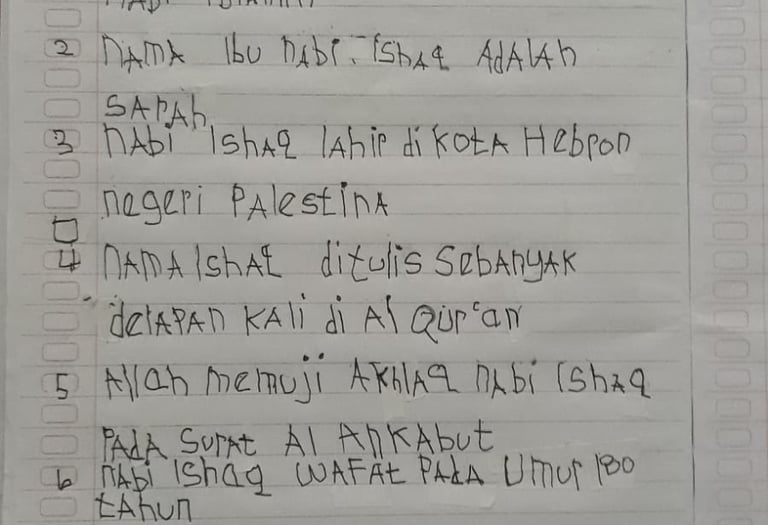 2 NAMA Ibu NAbi. IShAq AdAlAh
SARAh
3 NAbi IShAq lAhir di KotA Hebron
negeri PAlestinA
4 NAMA IShAq ditulis SebAnyAK
delAPAN KAli di Al Qur'an
5 Allah memuji AKhlAq NAbi IShAq
PAdA SurAt Al AnKAbut
6 NAbi IShaq WAFAt PAdA Umur 180
tAhun